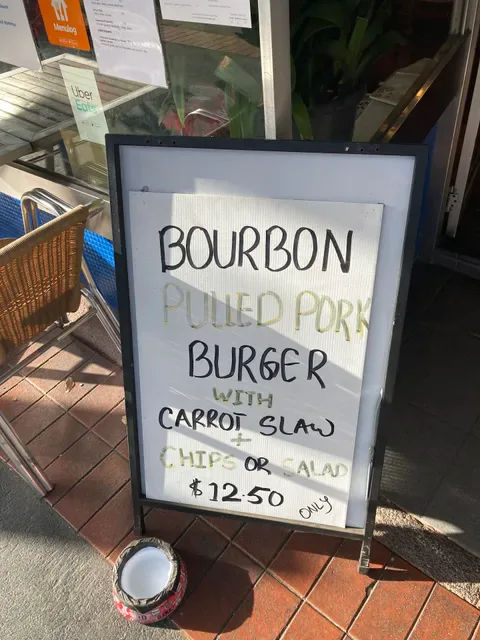 Menulog
Uber
Eats
BOURBON
PULLED PORK
BURGER
WITH
CARROT SLAW
+
CHIPS OR SALAD
$12.50
ONLY